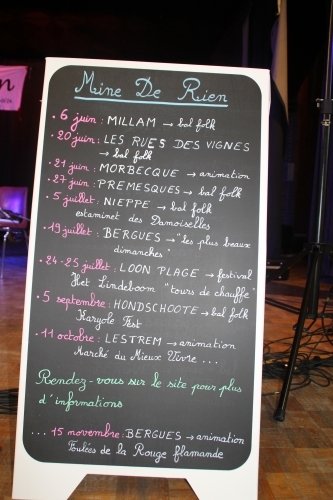 Mine De Rien
• 6 juin : MILLAM → bal folk
• 20 juin : LES RUES DES VIGNES
→ bal folk
• 21 juin : MORBECQUE → animation
• 27 juin : PREMESQUES → bal folk
• 5 juillet : NIEPPE → bal folk
estaminet des Damoiselles
• 19 juillet : BERGUES → "les plus beaux
dimanches"
• 24-25 juillet : LOON PLAGE → festival
Het Lindeboom "tours de chauffe"
• 5 septembre : HONDSCHOOTE → bal folk
Karyole Fest
• 11 octobre : LESTREM → animation
Marché du Mieux Vivre ...
Rendez-vous sur le site pour plus
d'informations
... 15 novembre : BERGUES → animation
Foulées de la Rouge flamande